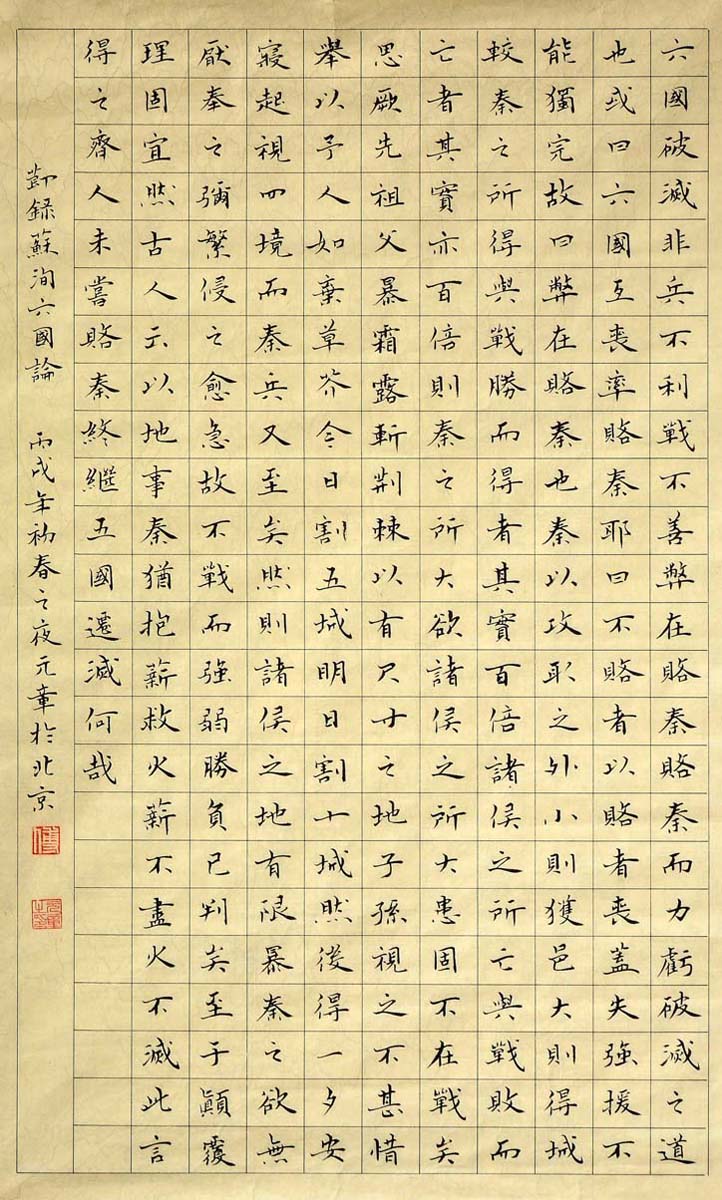 六國破滅非兵不利戰不善弊在賂秦賂秦而力虧破滅之道
也或曰六國互喪率賂秦耶曰不賂者以賂者喪蓋失強援不
能獨完故曰弊在賂秦也秦以攻取之外小則獲邑大則得城
較秦之所得與戰勝而得者其實百倍諸侯之所亡與戰敗而
亡者其實亦百倍則秦之所大欲諸侯之所大患固不在戰矣
思厥先祖父暴霜露斬荊棘以有尺寸之地子孫視之不甚惜
舉以予人如棄草芥今日割五城明日割十城然後得一夕安
寢起視四境而秦兵又至矣然則諸侯之地有限暴秦之欲無
厭奉之彌繁侵之愈急故不戰而強弱勝負已判矣至于顛覆
理固宜然古人云以地事秦猶抱薪救火薪不盡火不滅此言
得之齊人未嘗賂秦終繼五國遷滅何哉
節錄蘇洵六國論 丙戌年初春之夜元章於北京